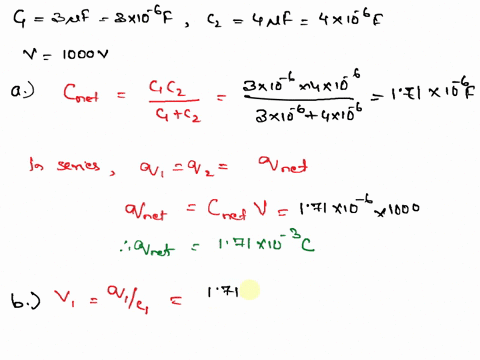 C₁ = 3μF = 3×10⁻⁶F , C₂ = 4μF = 4×10⁻⁶F
V = 1000V
a.) Cnet = C₁C₂ / C₁+C₂ = 3×10⁻⁶ × 4×10⁻⁶ / 3×10⁻⁶ + 4×10⁻⁶ = 1.71 × 10⁻⁶F
In series, q₁ = q₂ = qnet
qnet = Cnet V = 1.71 × 10⁻⁶ × 1000
∴ qnet = 1.71 × 10⁻³ C
b.) V₁ = q₁/c₁ = 1.71